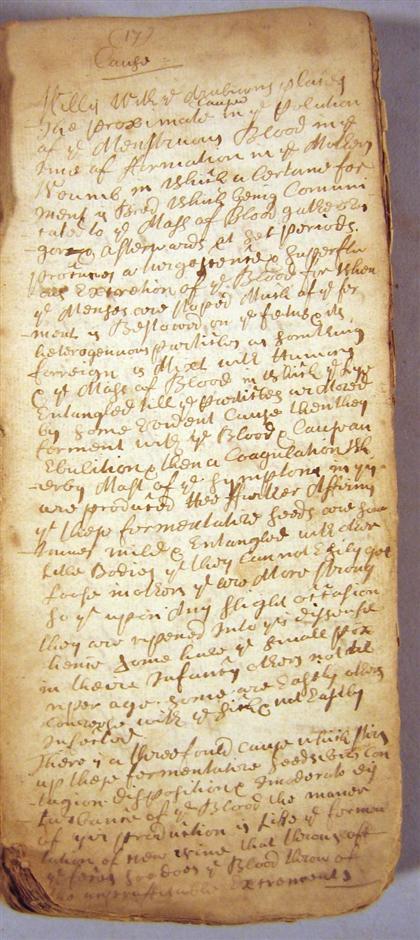 (17)
Cause =
Willis with ye
The proximate Cause in ye Polution
of ye Menstruous Blood in ye
time of formation in ye Mothers
Woumb in which a certane for
ment is Bred which being Comuni
cated to ye Mass of Blood
afterwards at set periods
procures a turgescence & superflu
ous Excretion of ye Blood for when
ye Menses are stoped Much of ye fer
ment is Bestowed on ye fetus & its
heterogenious particles as something
forreign is Mixt with
& ye Mass of Blood in which they
Entangled till ye particles are Moved
by some Evident Cause then they
forment with ye Blood & Cause an
Ebulition & then a Coagulation Wh
erby Most of ye symptoms in ys
are produced hee further Affirms
yt these fermentative seeds are som
times mild & Entangled with other
like Bodies yt they cannot Easily get
loose in others ye are More strong
so yt upon Any slight occasion
they are ripened into ys disease
hence some have ye small pox
in theire infancy others not till
riper age some are Easily others
Converse with ye sick & not Easily
Infected
There is a threefould cause which stirs
up these fermentative seeds viz Con
tagion disposition & Imoderate dis
turbance of ye Blood the maner
of yir production is Like ye fermen
tation of New wine that throws off
ye so does ye Blood throw of
Excrements